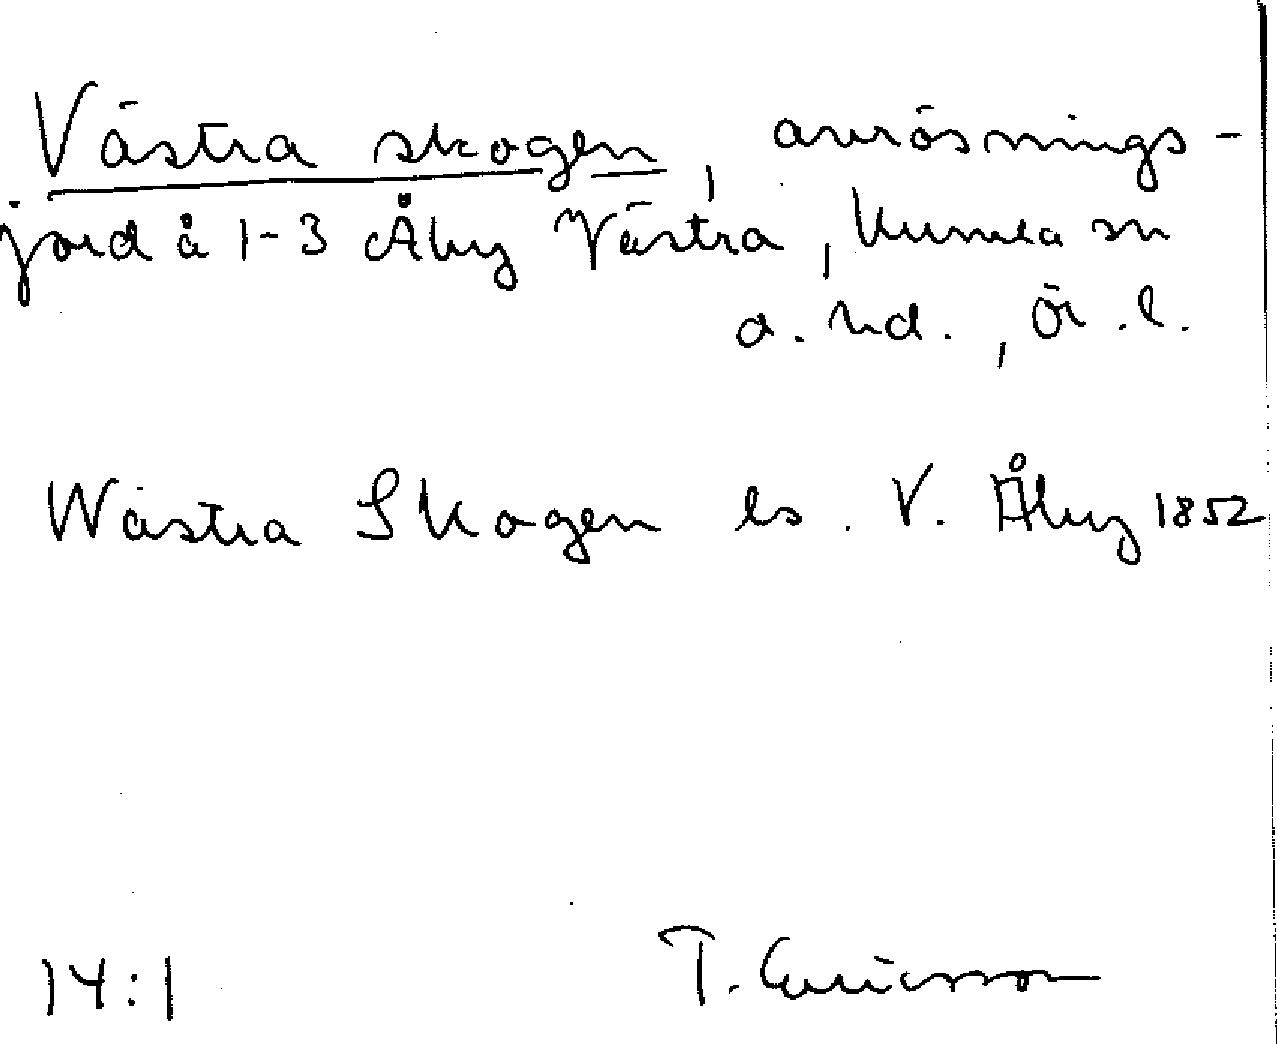 Västra skogen, avrösnings-
jord å 1-3 Åby Västra, Kumla sn
o. hd., Ör. l.
Wästra Skogen ls. V. Åby 1852
14:1
T. Ericsson